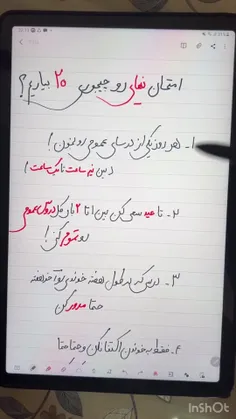 امتحان نهایی رو چجوری ۲۰ بیاریم؟
۱- هر روز یکی از درسای عمومی رو بخون!
(بین نیم ساعت تا یک ساعت!)
۲- تا عید سعی کن بین ۱ تا ۲ بار کل دروس عمومی
رو تموم کنی!
۳- درسی که در طول هفته خوندی رو آخر هفته
حتما مرور کن
۴- فقط به خوندن اکتفا نکن و حتما حتما
InShOt